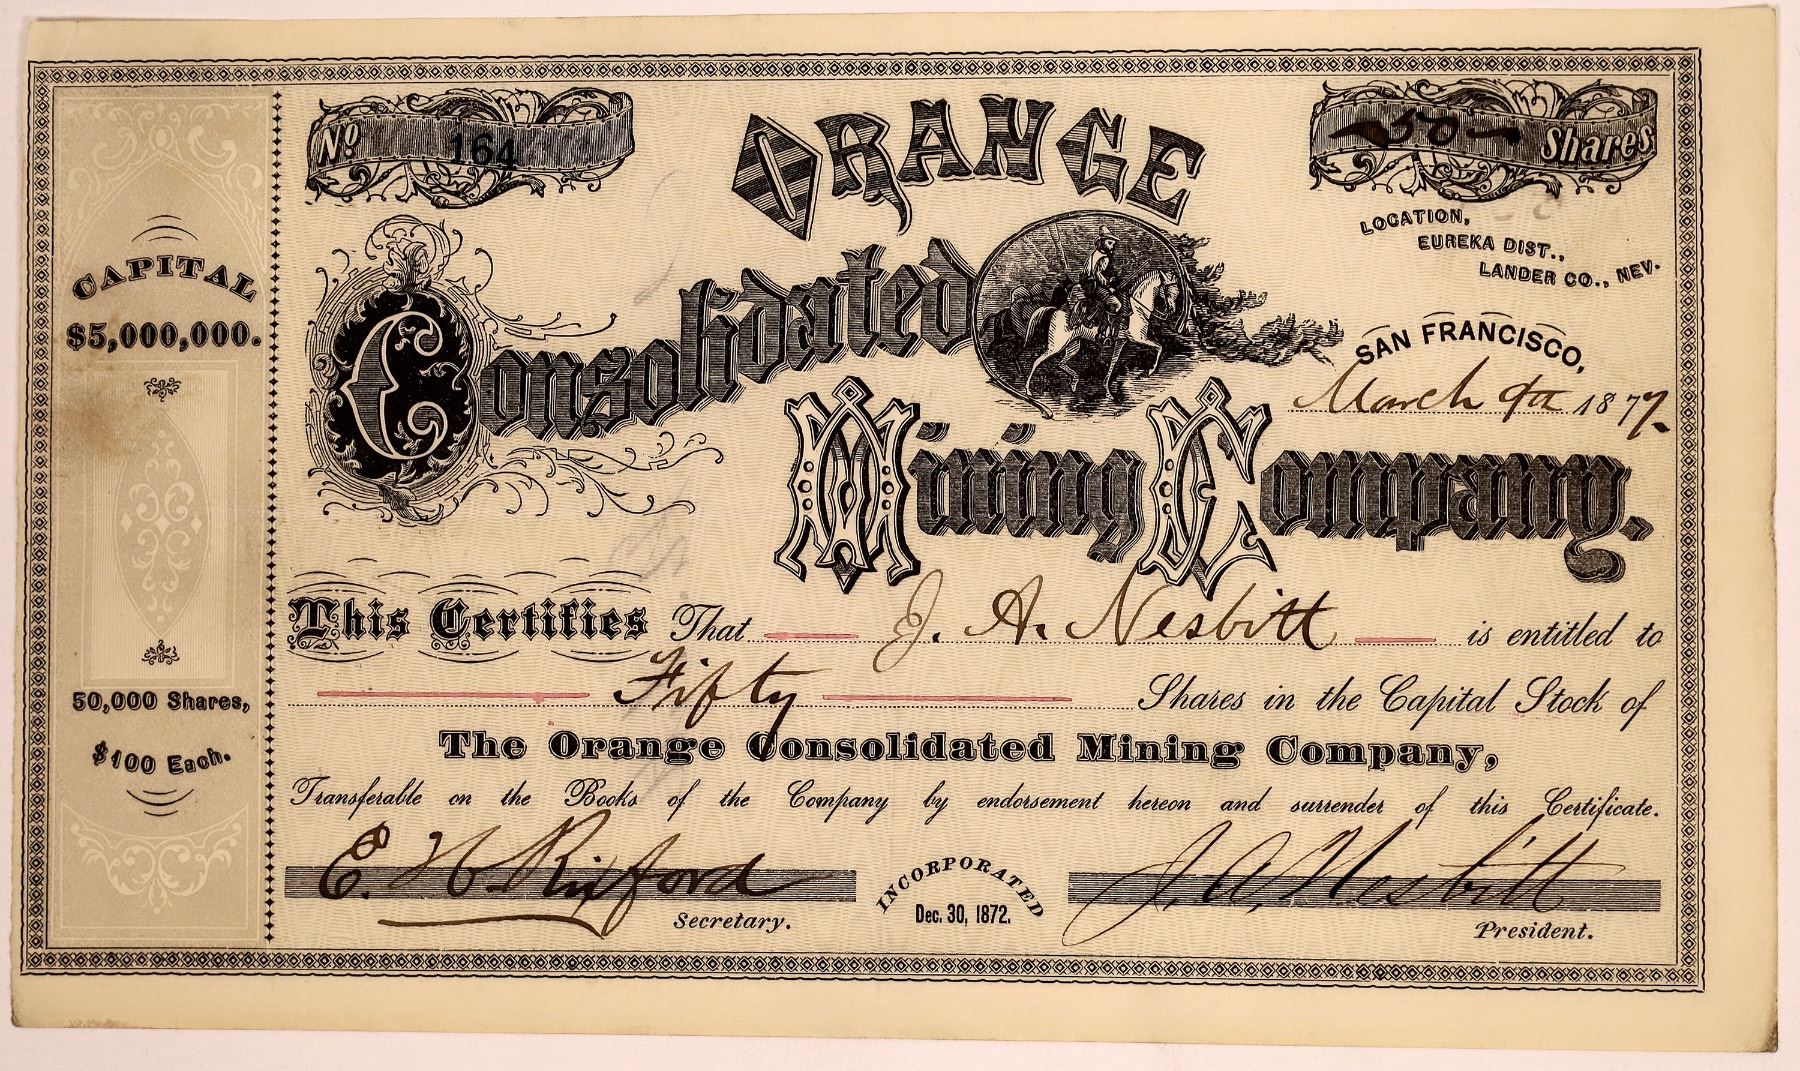 No. 164
50 Shares
ORANGE
Consolidated
Mining Company.
LOCATION,
EUREKA DIST.,
LANDER CO., NEV.
SAN FRANCISCO,
March 9th 1877.
CAPITAL
$5,000,000.
50,000 Shares,
$100 Each.
This Certifies That J. A. Nesbitt is entitled to
Fifty Shares in the Capital Stock of
The Orange Consolidated Mining Company,
Transferable on the Books of the Company by endorsement hereon and surrender of this Certificate.
E. W. Rixford
Secretary.
INCORPORATED
Dec. 30, 1872.
J. A. Nesbitt
President.